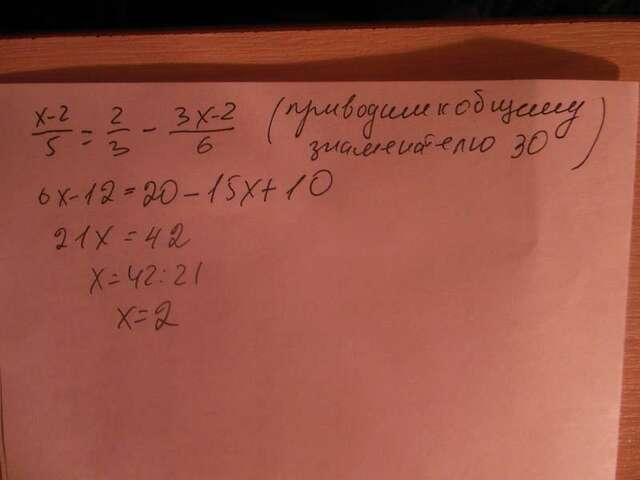 x-2/5 = 2/3 - 3x-2/6 (приводим к общему
знаменателю 30)
6x-12=20-15x+10
21x=42
x=42:21
x=2